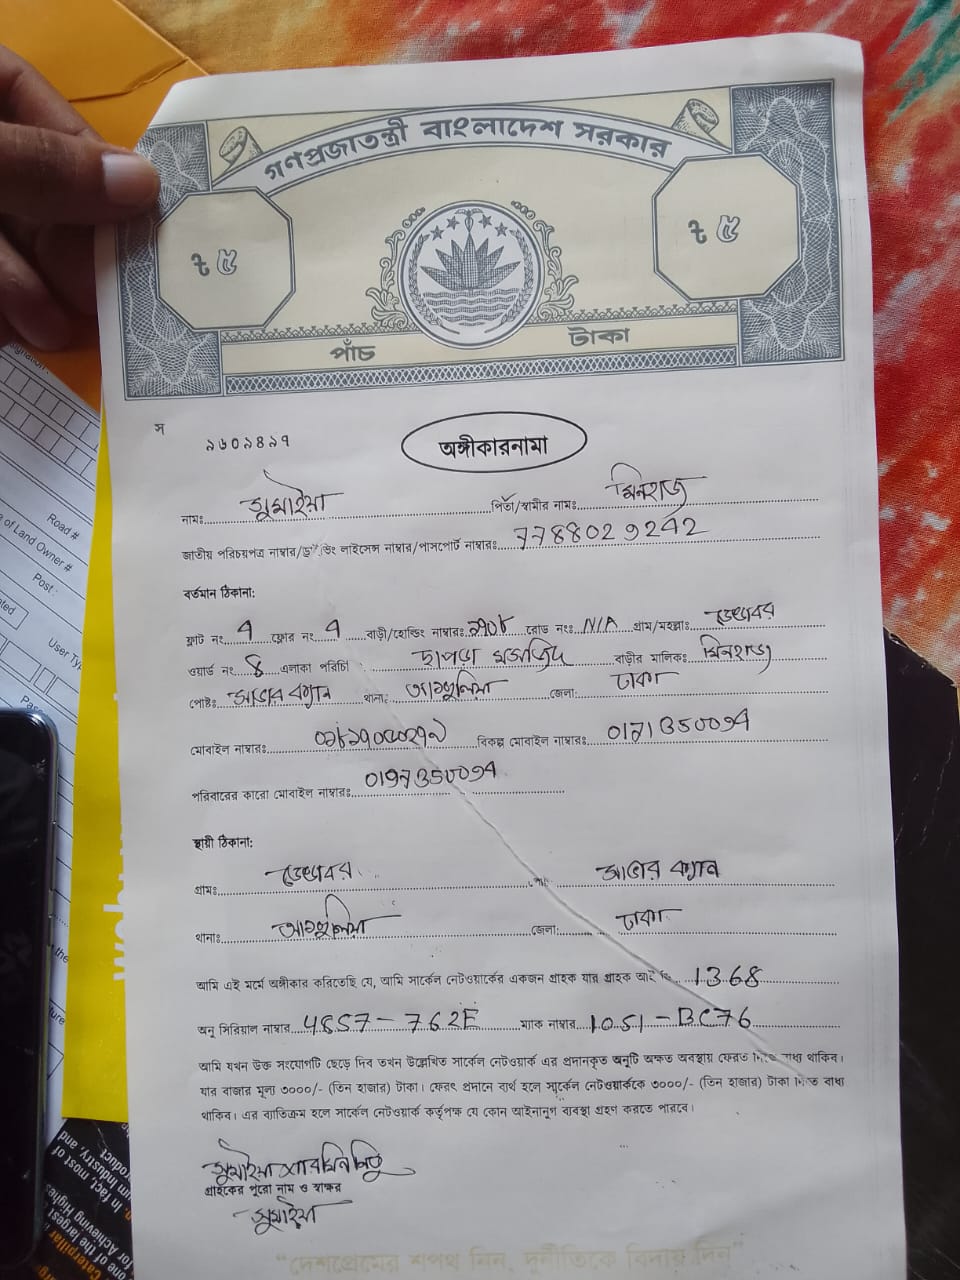 গণপ্রজাতন্ত্রী বাংলাদেশ সরকার
৳ ৫
৳ ৫
পাঁচ টাকা
স
৯৬০৯৪৯৭
অঙ্গীকারনামা
নামঃ সুমাইয়া পিতা/স্বামীর নামঃ মিনরাজ
জাতীয় পরিচয়পত্র নাম্বার/ড্রাইভিং লাইসেন্স নাম্বার/পাসপোর্ট নাম্বারঃ 7788029242
বর্তমান ঠিকানা:
ফ্লাট নং 7 ফ্লোর নং 7 বাড়ী/হোল্ডিং নাম্বারঃ ১৭০৮ রোড নংঃ N/A গ্রাম/মহল্লাঃ ডেন্ডাবর
ওয়ার্ড নং 8 এলাকা পরিচিতি ছাপড়া মসজিদ বাড়ীর মালিকঃ মিনরাজ
পোষ্টঃ সাভার ক্যান্ট থানা: আশুলিয়া জেলা: ঢাকা
মোবাইল নাম্বারঃ বিকল্প মোবাইল নাম্বারঃ
পরিবারের কারো মোবাইল নাম্বারঃ
স্থায়ী ঠিকানা:
গ্রামঃ ডেন্ডাবর সাভার ক্যান্ট
থানাঃ আশুলিয়া জেলা: ঢাকা
আমি এই মর্মে অঙ্গীকার করিতেছি যে, আমি সার্কেল নেটওয়ার্কের একজন গ্রাহক যার গ্রাহক আই ডি 1368
অনু সিরিয়াল নাম্বার 4857-762E ম্যাক নাম্বার 1051-BC76
আমি যখন উক্ত সংযোগটি ছেড়ে দিব তখন উল্লেখিত সার্কেল নেটওয়ার্ক এর প্রদানকৃত অনুটি অক্ষত অবস্থায় ফেরত দিতে বাধ্য থাকিব।
যার বাজার মূল্য ৩০০০/- (তিন হাজার) টাকা। ফেরৎ প্রদানে ব্যর্থ হলে সার্কেল নেটওয়ার্ককে ৩০০০/- (তিন হাজার) টাকা দিতে বাধ্য
থাকিব। এর ব্যতিক্রম হলে সার্কেল নেটওয়ার্ক কর্তৃপক্ষ যে কোন আইনানুগ ব্যবস্থা গ্রহণ করতে পারবে।
সুমাইয়া শারমিন
গ্রাহকের পুরো নাম ও স্বাক্ষর
সুমাইয়া
"দেশপ্রেমের শপথ নিন, দুর্নীতিকে বিদায় দিন"
Road #
of Land Owner #
Post :